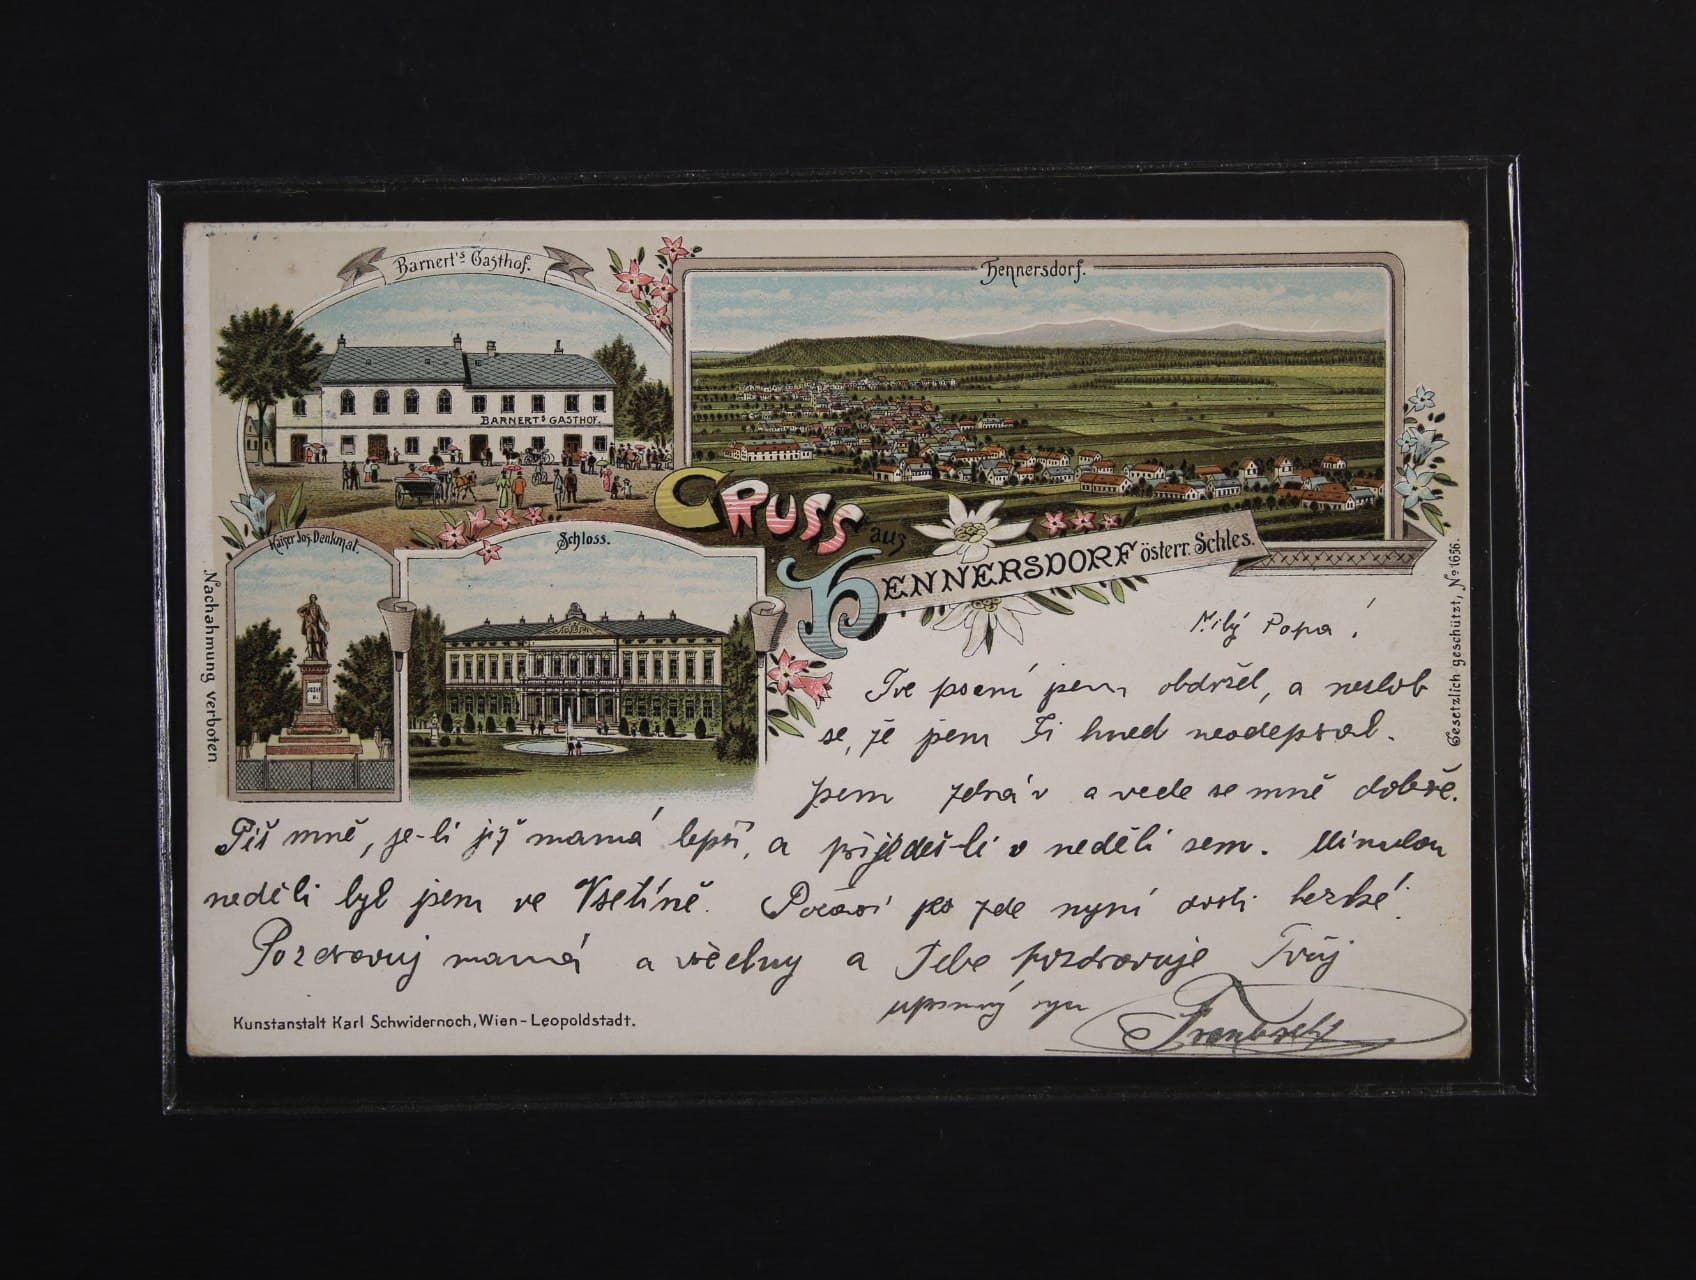 Barnert's Gasthof.
Hennersdorf.
BARNERT'S GASTHOF.
GRUSS aus
HENNERSDORF österr. Schles.
Kaiser Jos. Denkmal.
Schloss.
JOSEF
II.
Nachahmung verboten
Gesetzlich geschützt, No 1656.
Milý Papa!
Tvé psaní jsem obdržel, a nezlob
se, že jsem Ti hned neodepsal.
Jsem zdráv a vede se mně dobře.
Piš mně, je-li již mamá lepší, a přijedeš-li v neděli sem. Minulou
neděli byl jsem ve Vsetíně. Počasí je zde nyní dosti hezké.
Pozdravuj mamá a všechny a Tebe pozdravuje Tvůj
upřímný syn
Kunstanstalt Karl Schwidernoch, Wien-Leopoldstadt.